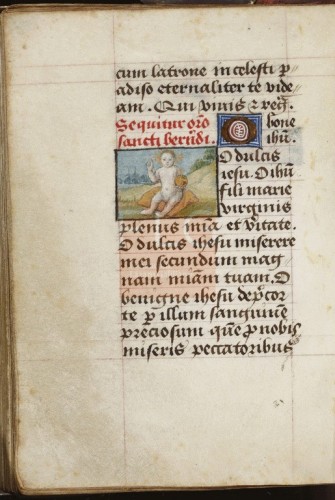 cum latrone in celesti p
adiso eternaliter te vide
am. Qui vivis et reg.
Sequitur oro
sancti berndi.
O bone
ihu.
O dulcis
iesu. O ihu
fili marie
virginis
plenus mia et vitate.
O dulcis ihesu miserere
mei secundum mag
nam miam tuam. O
benigne ihesu depcor
te p illum sanguine
preciosum que p nobis
miseris peccatoribus